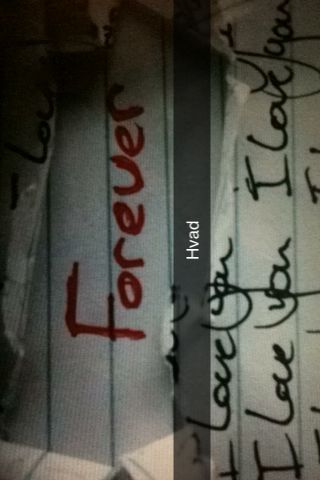 Forever
Hvad
I Love You
I Love you I Love you